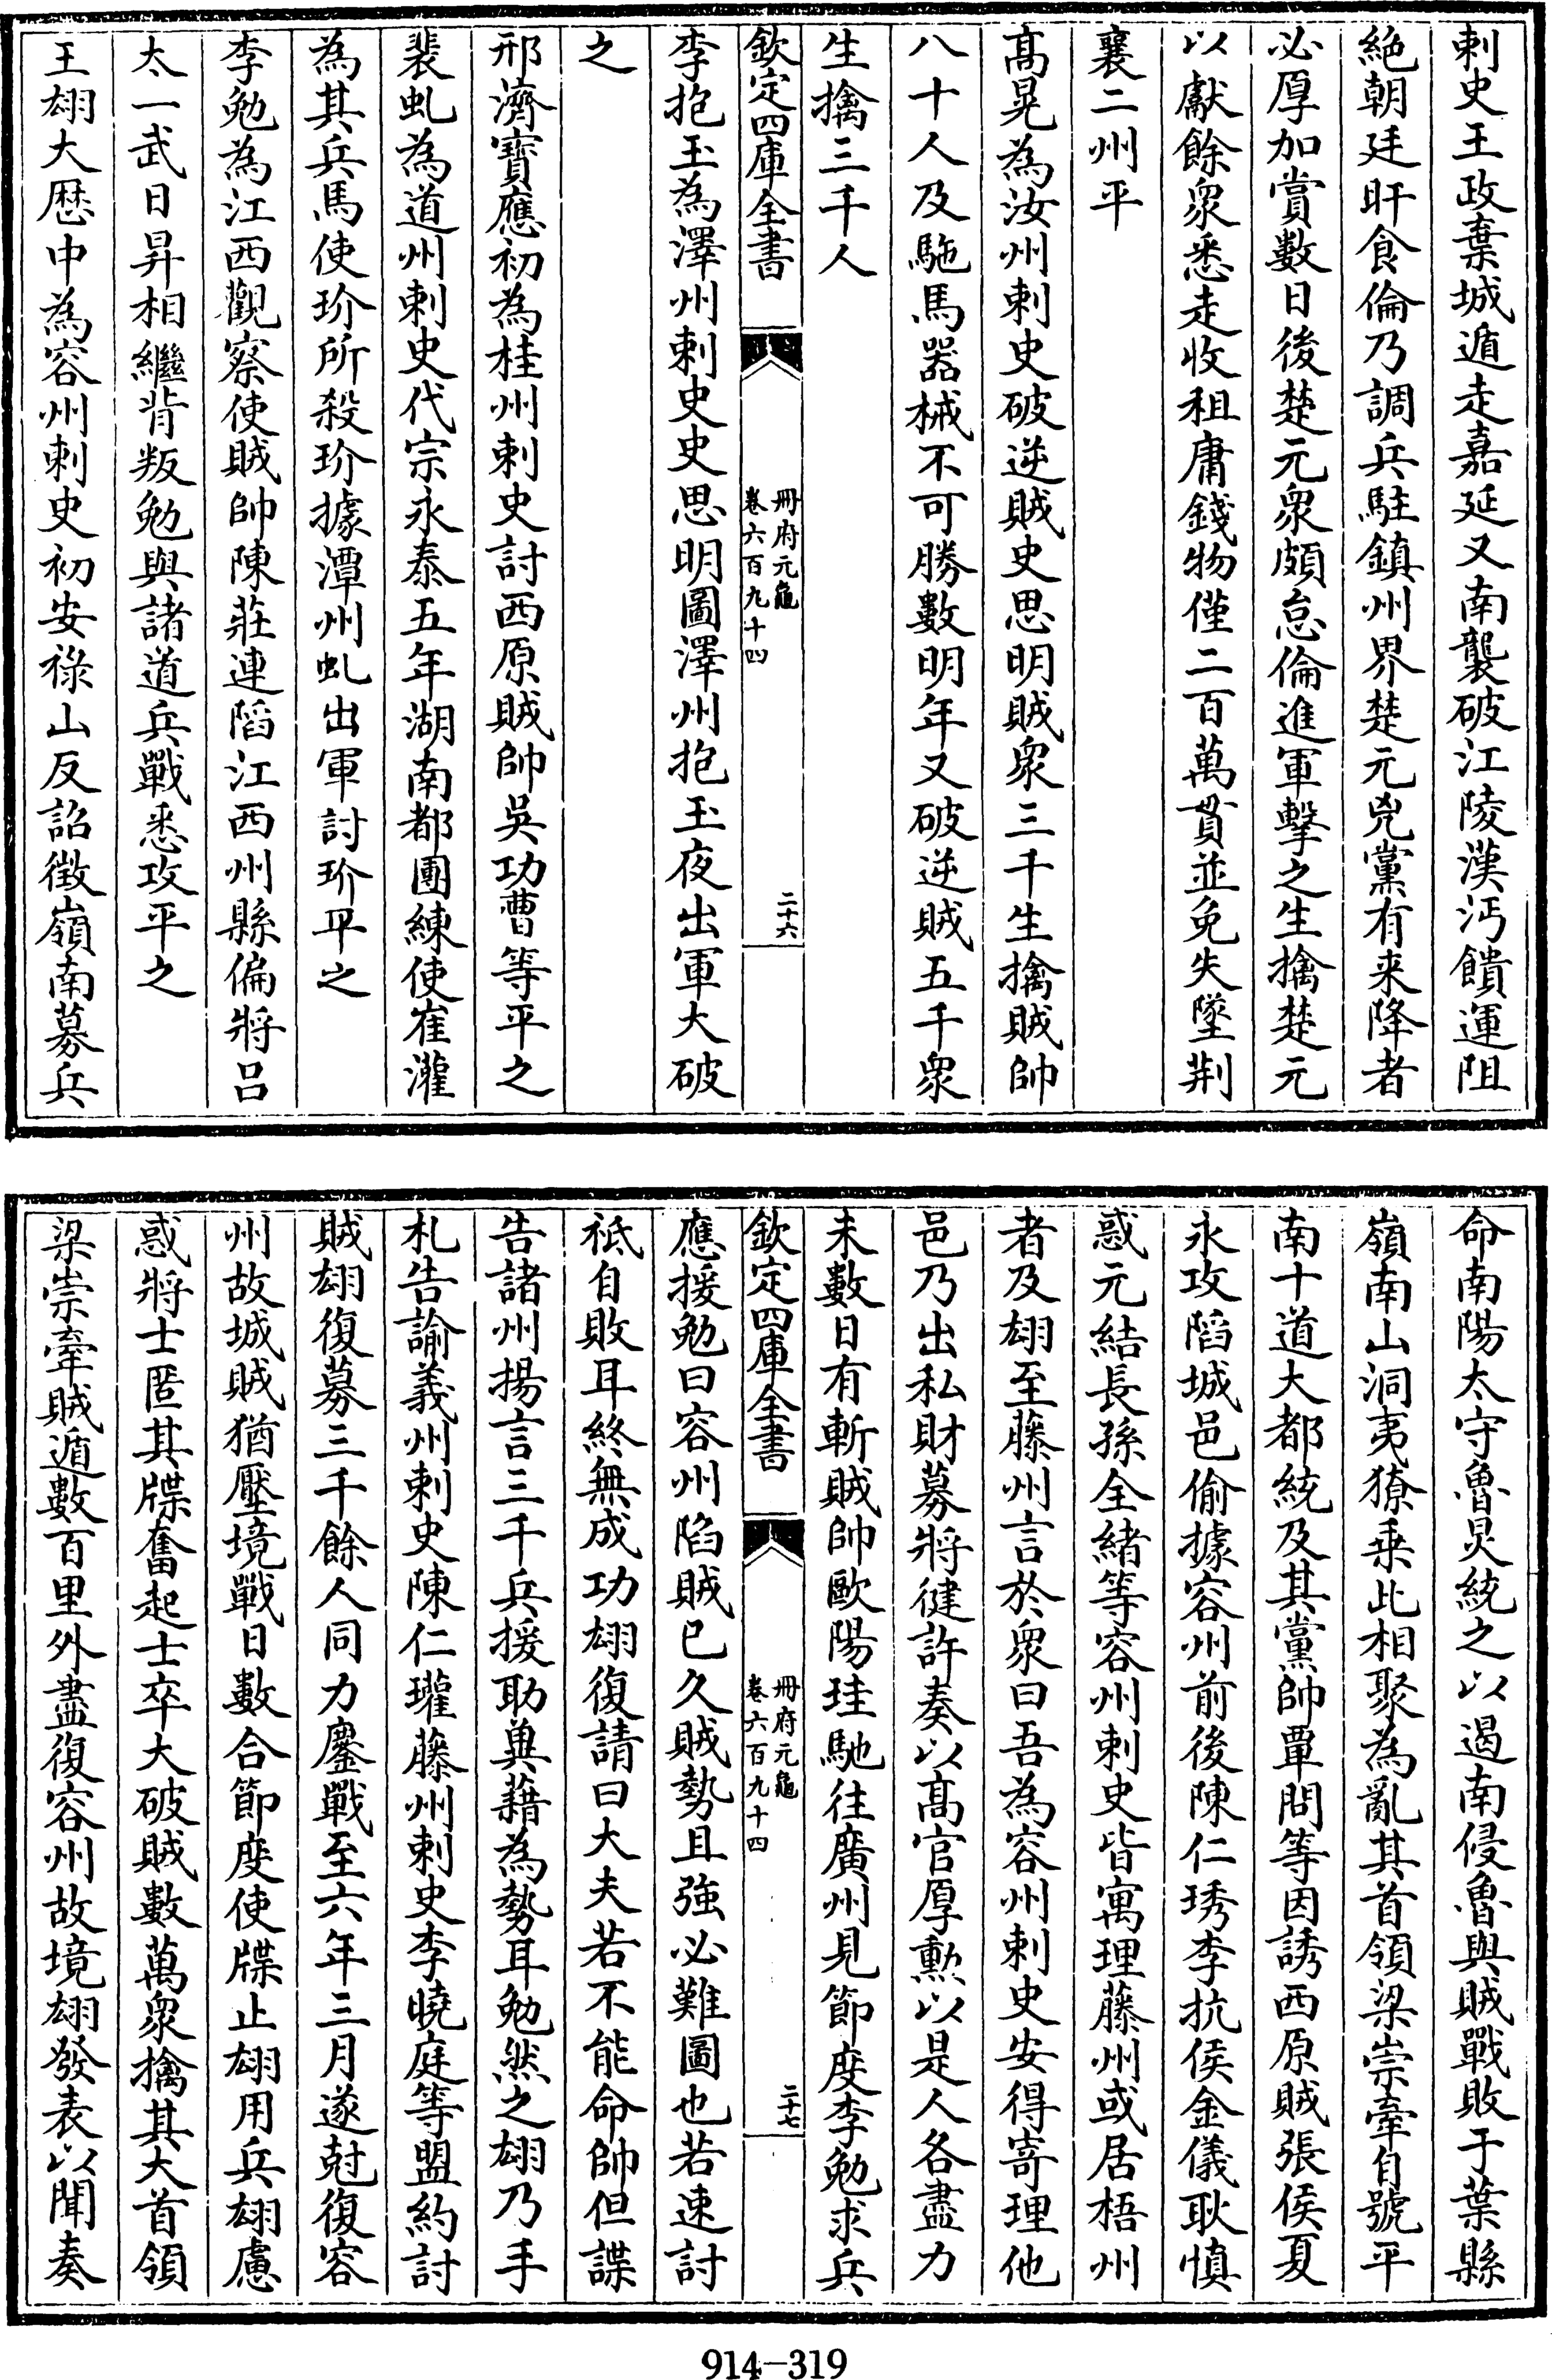 刺史王政棄城遁走嘉延又南襲破江陵漢沔饋運阻
絶朝廷旰食倫乃調兵駐鎮州界楚元兇黨有来降者
必厚加賞數日後楚元衆頗怠倫進軍擊之生擒楚元
以獻餘衆悉走收租庸錢物僅二百萬貫並免失墜荆
襄二州平
髙晃為汝州刺史破逆賊史思明賊衆三千生擒賊帥
八十人及駞馬器械不可勝數明年又破逆賊五千衆
生擒三千人
欽定四庫全書
冊府元龜
卷六百九十四
二十六
李抱玉為澤州刺史史思明圖澤州抱玉夜出軍大破
之
邢濟寳應初為桂州刺史討西原賊帥吳功曹等平之
裴虬為道州刺史代宗永泰五年湖南都團練使崔灌
為其兵馬使玠所殺玠據潭州虬出軍討玠平之
李勉為江西觀察使賊帥陳莊連䧟江西州縣偏將吕
太一武日昇相繼背叛勉與諸道兵戰悉攻平之
王翃大厯中為容州刺史初安祿山反詔徵嶺南募兵
命南陽太守魯炅統之以遏南侵魯與賊戰敗于葉縣
嶺南山洞夷獠乗此相聚為亂其首領梁崇牽自號平
南十道大都統及其黨帥覃問等因誘西原賊張侯夏
永攻䧟城邑偷據容州前後陳仁琇李抗侯金儀耿慎
惑元結長孫全緒等容州刺史皆寓理藤州或居梧州
者及翃至藤州言於衆曰吾為容州刺史安得寄理他
邑乃出私財募將健許奏以髙官厚勲以是人各盡力
未數日有斬賊帥歐陽珪馳往廣州見節度李勉求兵
欽定四庫全書
冊府元龜
卷六百九十四
二十七
應援勉曰容州陷賊已久賊勢且強必難圖也若速討
祗自敗耳終無成功翃復請曰大夫若不能命帥但諜
告諸州揚言三千兵援助兾藉為勢耳勉然之翃乃手
札告諭義州刺史陳仁璀藤州刺史李曉庭等盟約討
賊翃復募三千餘人同力鏖戰至六年三月遂尅復容
州故城賊猶壓境戰日數合節度使牒止翃用兵翃慮
惑將士匿其牒奮起士卒大破賊數萬衆擒其大首領
梁崇牽賊遁數百里外盡復容州故境翃發表以聞奏
914-319